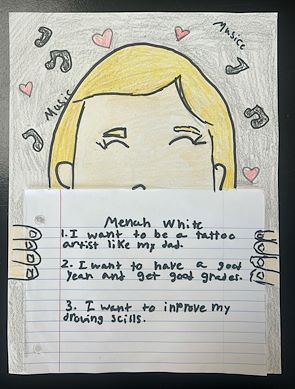 Musicc
Music
Menah White
1. I want to be a tattoo
artist like my dad.
2. I want to have a good
year and get good grades.
3. I want to inprove my
droving scills.